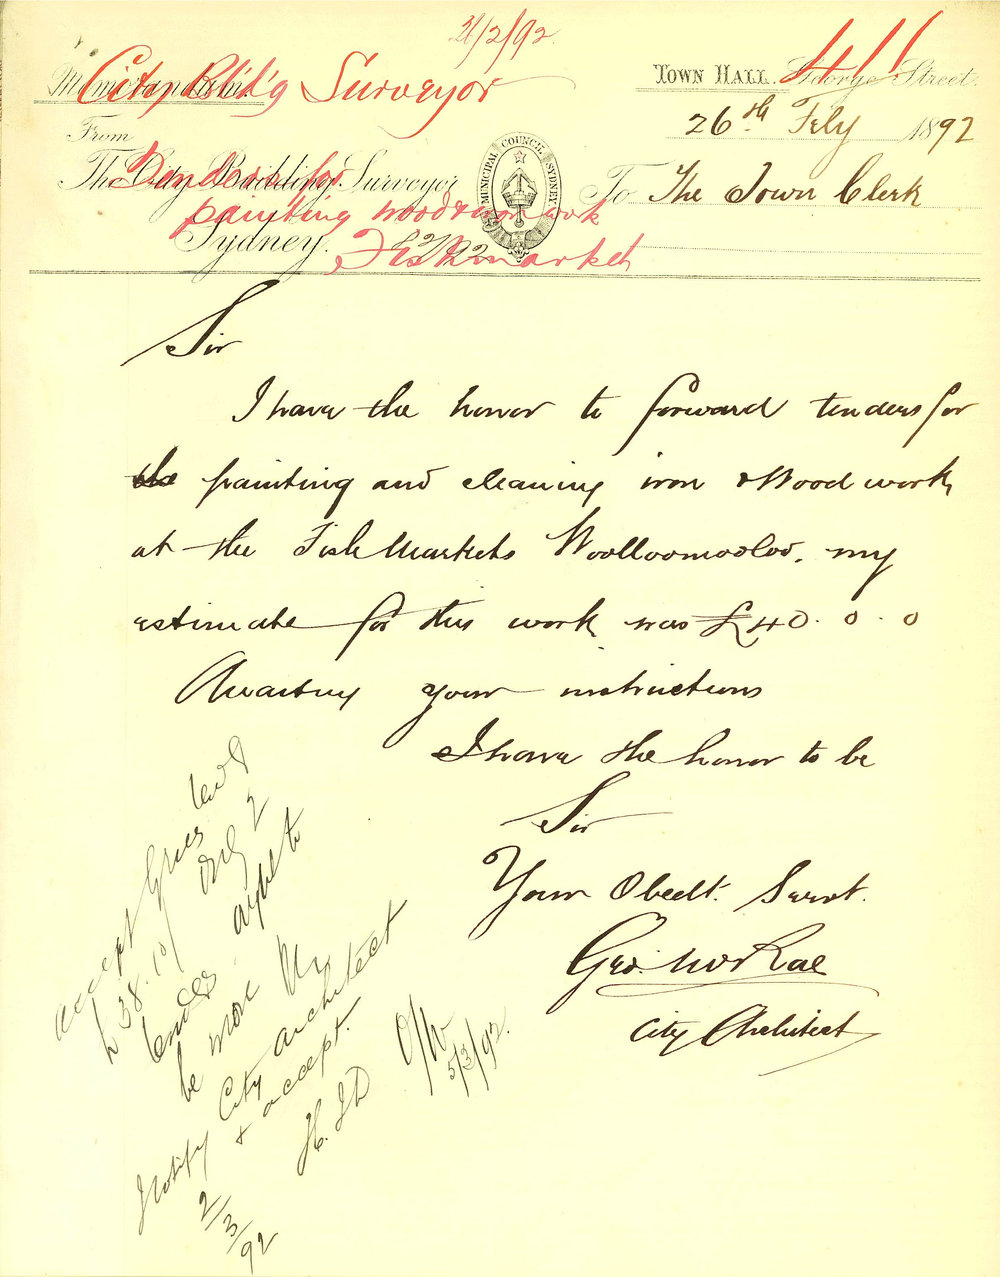 /2/92
City Bld'g Surveyor
Memorandum
TOWN HALL. George Street.
From
26th Feby 1892
The City Building Surveyor
Tenders for
To The Town Clerk
painting wood & ironwork
Sydney.
Fishmarket
MUNICIPAL COUNCIL SYDNEY
Sir
I have the honor to forward tenders for
the painting and cleaning iron & Wood work
at the Fish Markets Woolloomooloo. my
estimate for this work was £40.0.0
Awaiting your instructions
I have the honor to be
Sir
Your Obedt. Servt.
Geo. McRae
City Architect
accept
38.10/ only 2
tenders. ought to
be more
Notify City architect
& accept.
2/3/92
5/3/92.